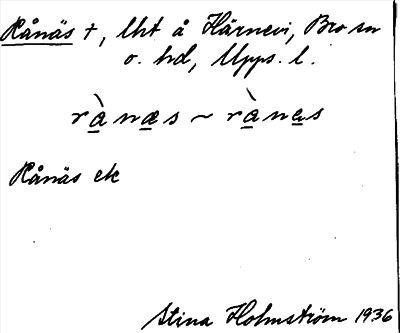 Rånäs +, lht å Härnevi, Bro sn
o. hd, Upps. l.
rànæs ~ rànes
Rånäs ek
Stina Holmström 1936